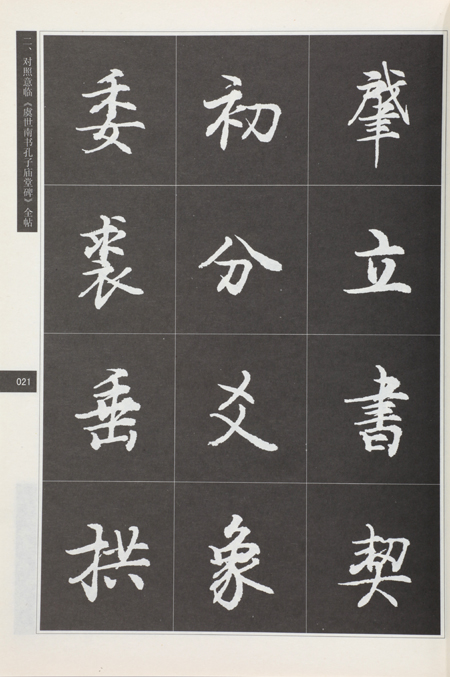 肇立書契
初分爻象
委裘垂拱
二、对照意临《虞世南书孔子庙堂碑》全帖
021